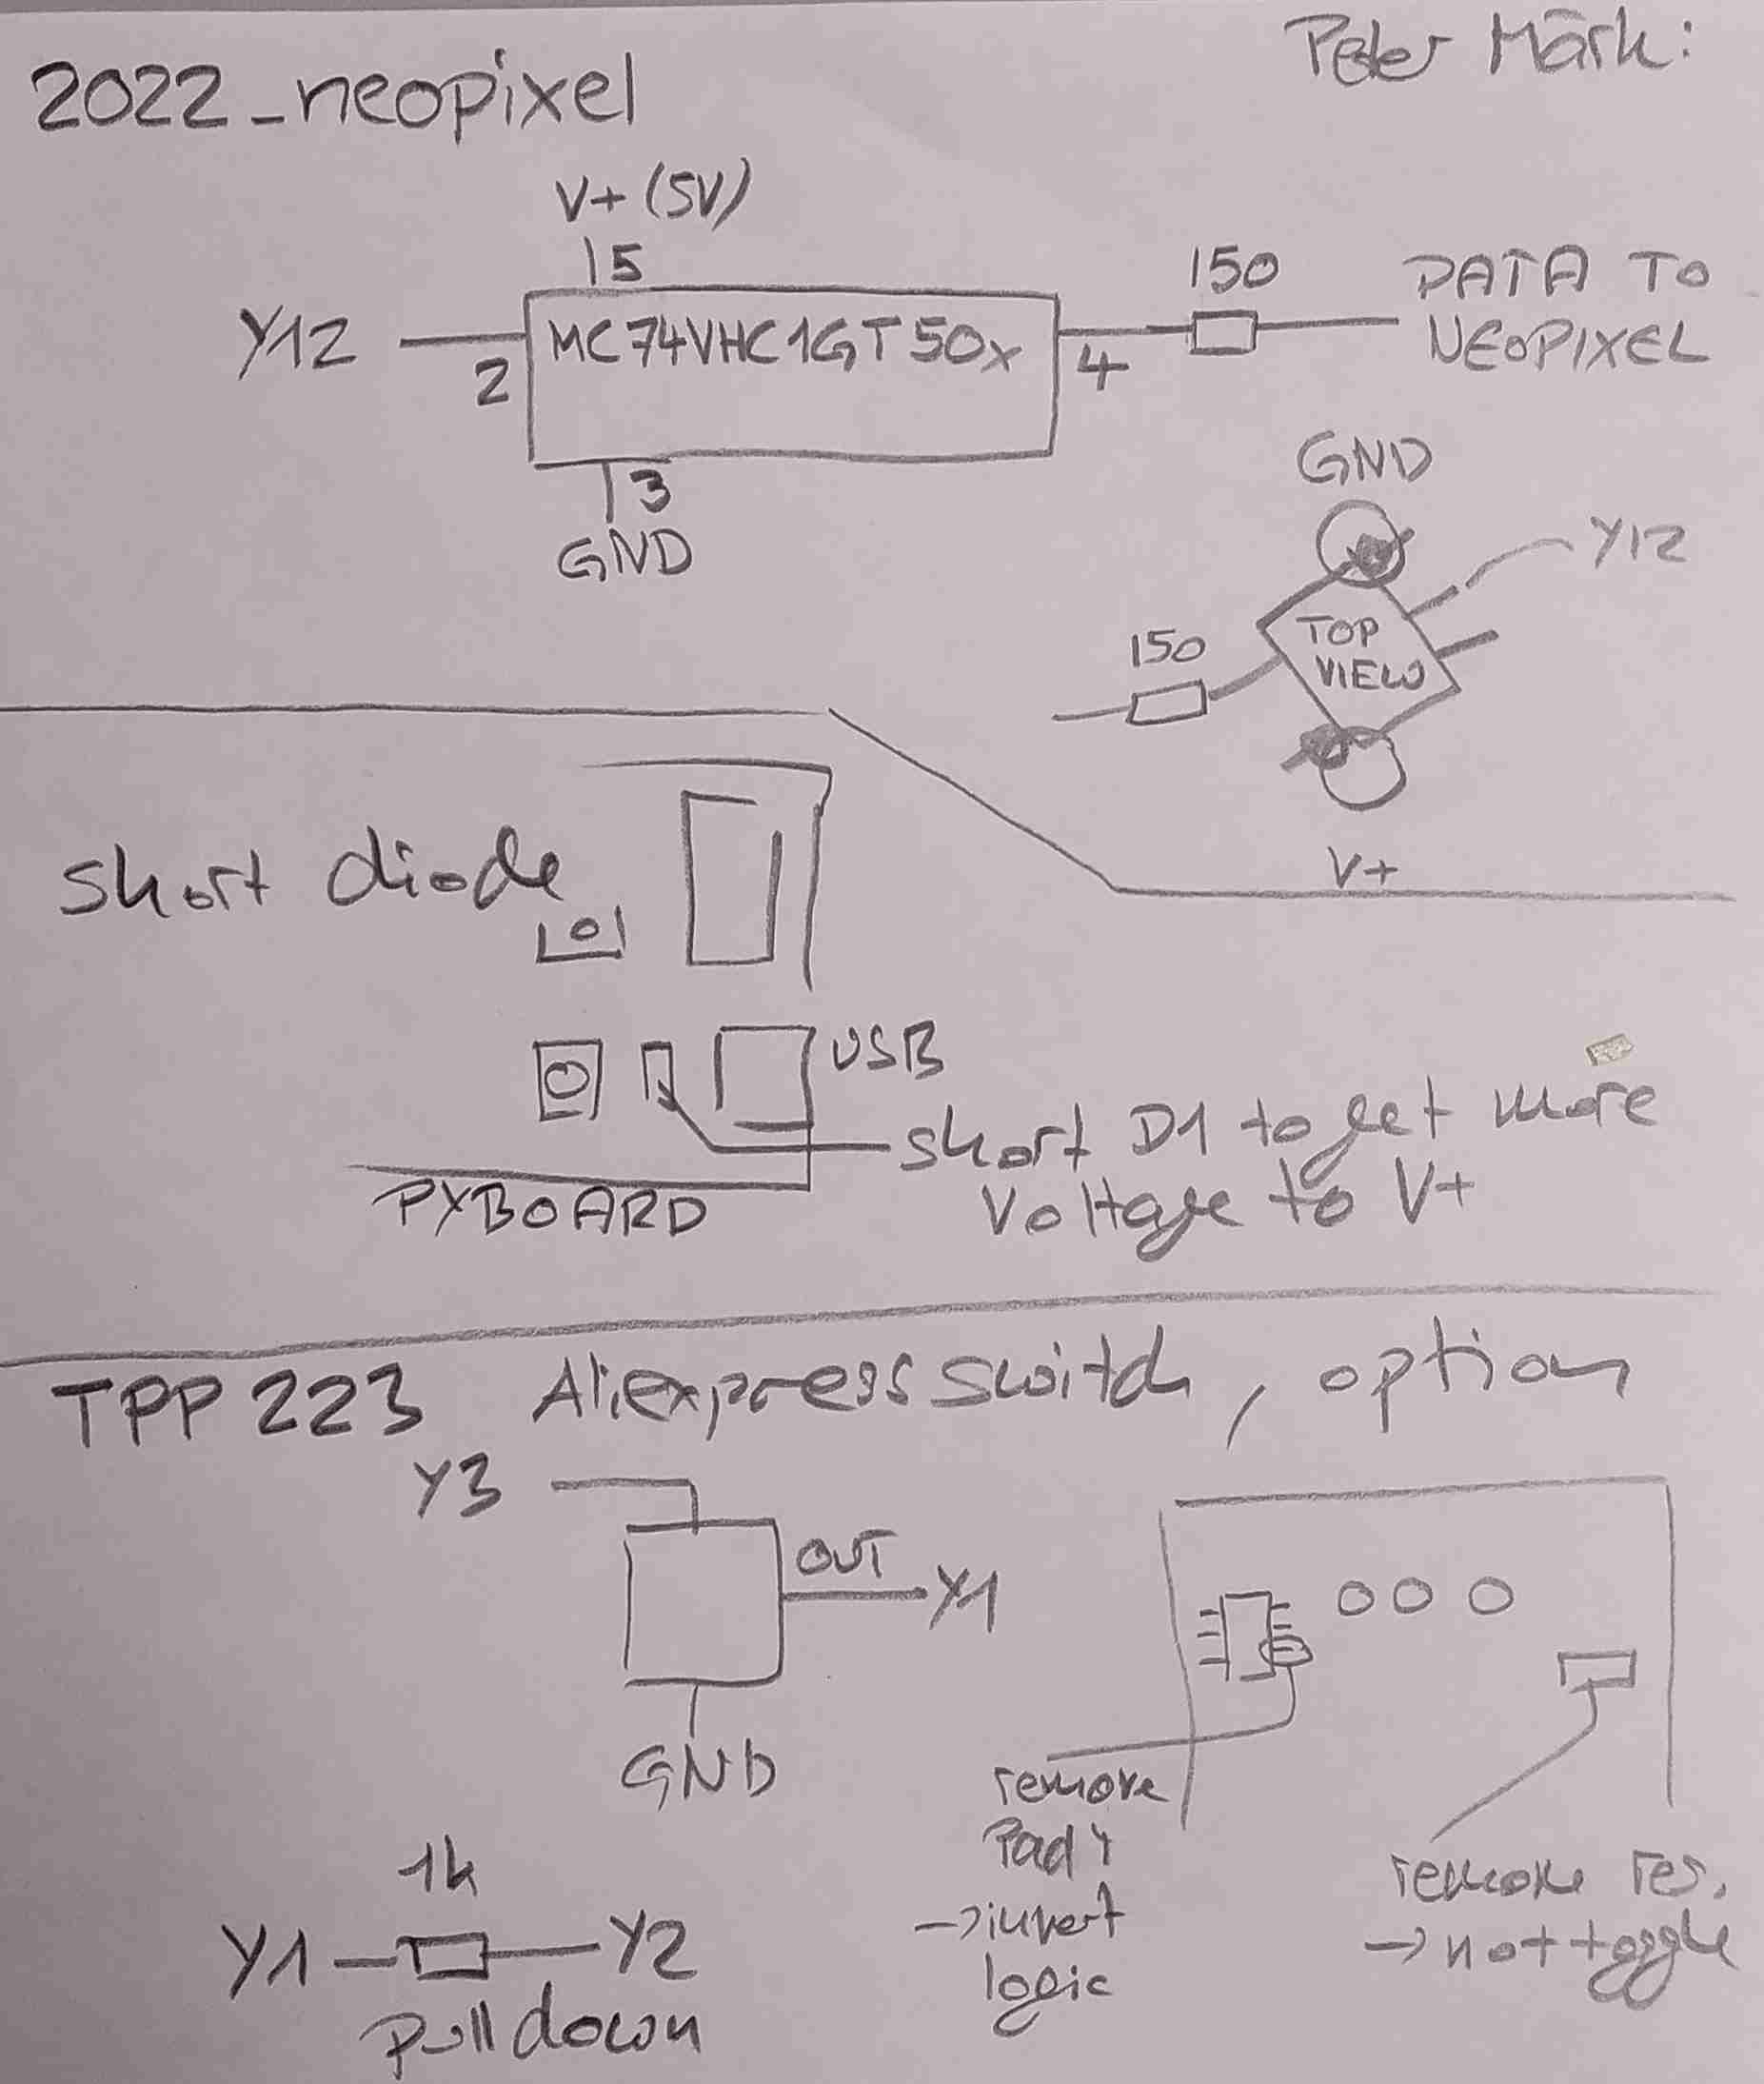 Peter Märk:
2022_neopixel
V+ (5V)
5
Y12
2
MC74VHC1GT50x
4
150
DATA TO
NEOPIXEL
3
GND
GND
Y12
TOP
VIEW
150
V+
short diode
USB
short D1 to get more
Voltage to V+
PYBOARD
TPP223 Aliexpress switch, option
Y3
OUT
Y1
GND
remove
Pad 4
→ invert
logic
remove res.
→ not toggle
1k
Y1
Y2
Pull down